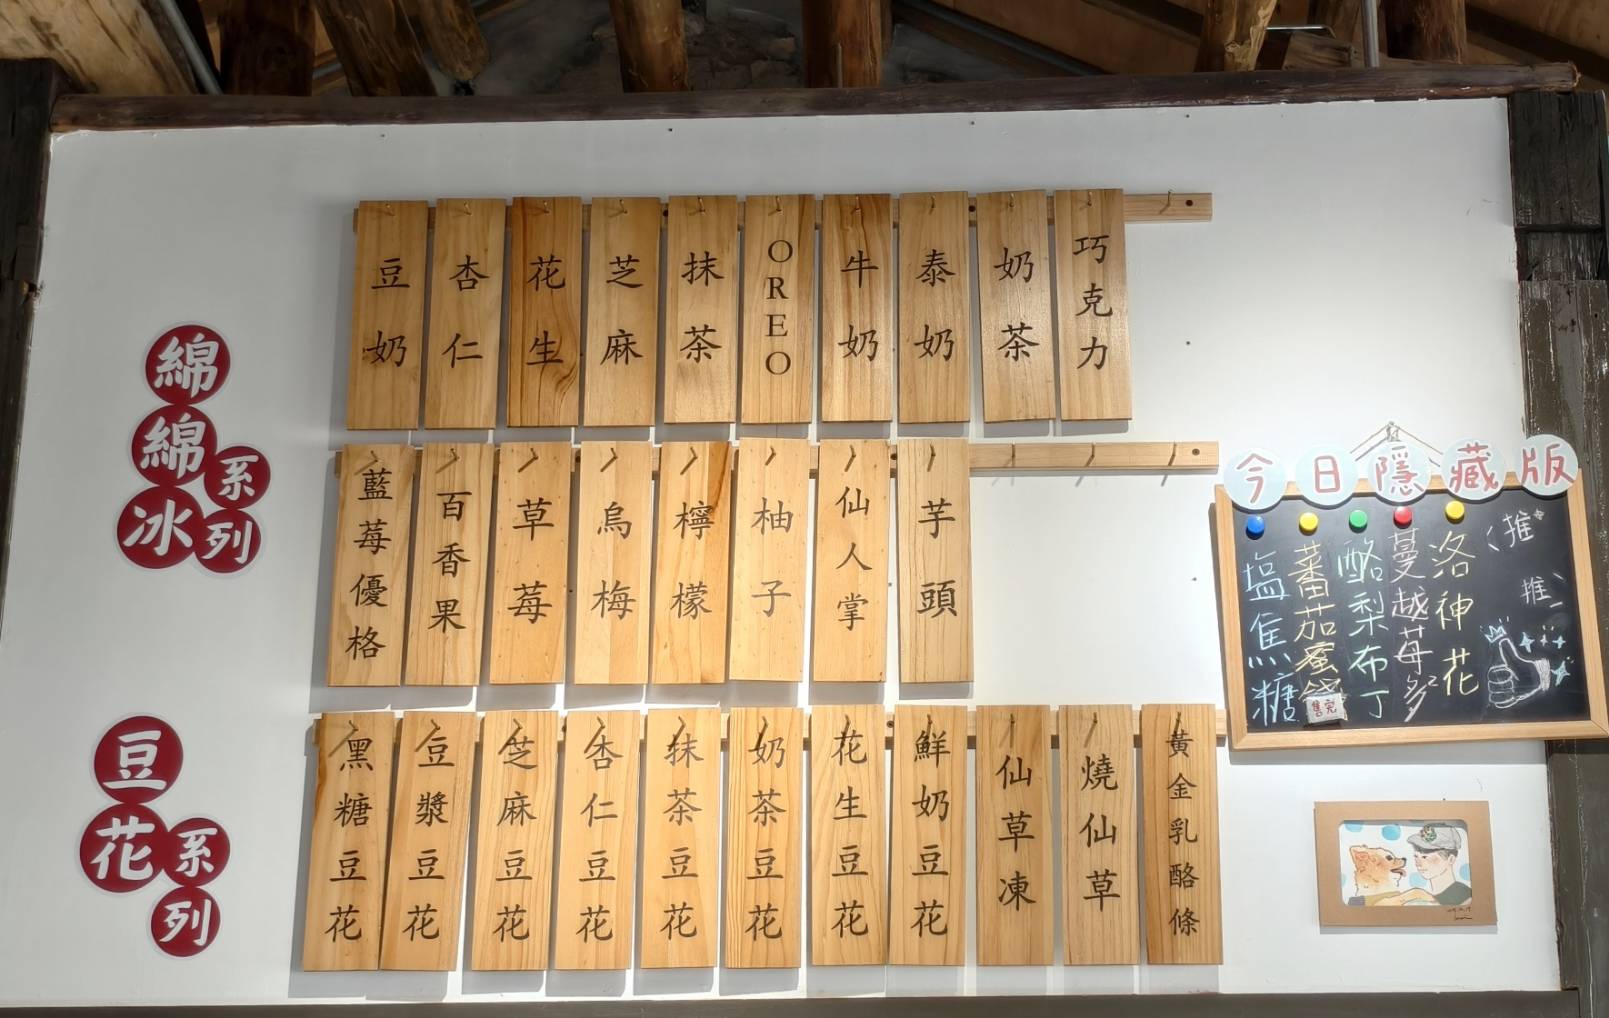 綿綿冰系列
豆奶
杏仁
花生
芝麻
抹茶
OREO
牛奶
泰奶
奶茶
巧克力
藍莓優格
百香果
草莓
烏梅
檸檬
柚子
仙人掌
芋頭
豆花系列
黑糖豆花
豆漿豆花
芝麻豆花
杏仁豆花
抹茶豆花
奶茶豆花
花生豆花
鮮奶豆花
仙草凍
燒仙草
黃金乳酪條
今日隱藏版
推
推
洛神花
蔓越莓多多
酪梨布丁
蕃茄蜜餞
售完
塩焦糖